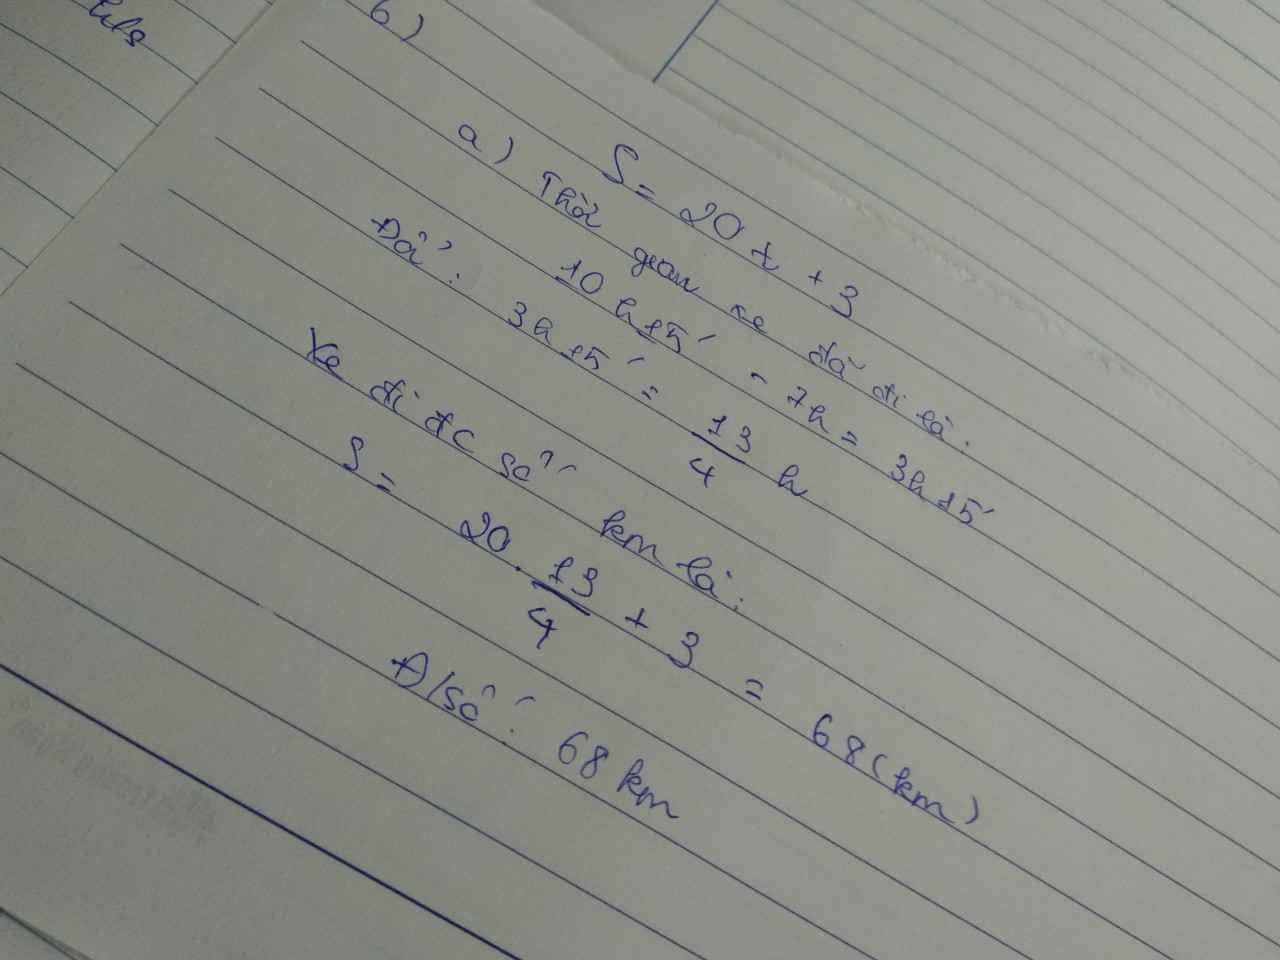 b)
S = 20t + 3
a) Thời gian xe đã đi là:
10h15' - 7h = 3h15'
Đổi: 3h15' = 13/4 h
Xe đi đc số km là:
S = 20 . 13/4 + 3 = 68 (km)
Đ/số: 68 km